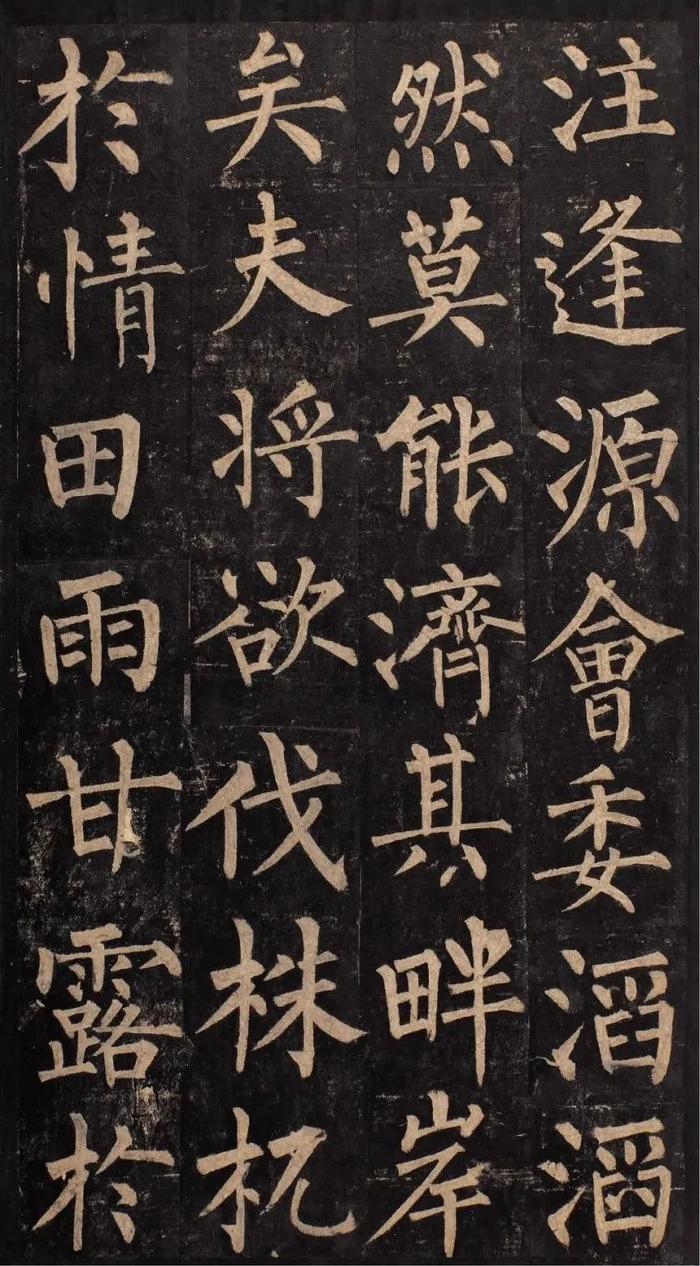 注逢源會委滔滔
然莫能濟其畔岸
矣夫将欲伐株杌
於情田雨甘露於